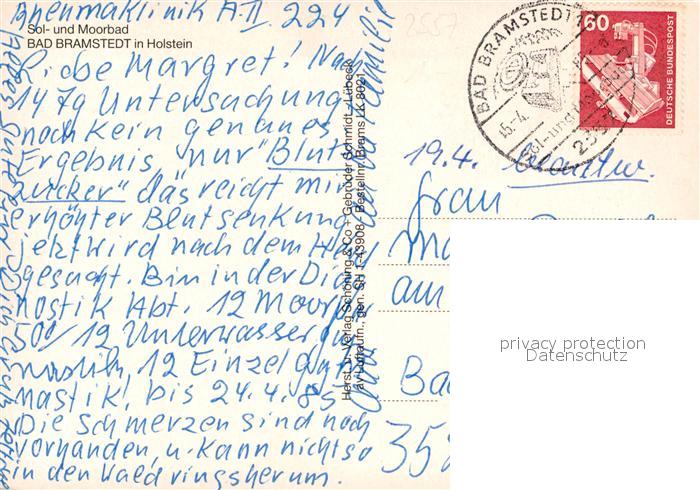 Rheumaklinik A II 224
Sol- und Moorbad
BAD BRAMSTEDT in Holstein
Liebe Margret! Nach
14 Tg Untersuchung
noch kein genaues
Ergebnis nur "Blut
zucker" das reicht mir
erhöhter Blutsenkung
jetzt wird nach dem
gesucht. Bin in der Diag
nostik Abt. 12 Moor
500/12 Unterwasser
12 Einzel gym
nastik! bis 24.4.85
Die Schmerzen sind noch
vorhanden, u. kann nicht so
in den Wald ringsherum.
Alles Gute
Familie
Herst. u. Verlag Schöning & Co + Gebrüder Schmidt, Lübeck
Luftaufn., gen. SH 1-43908 Bestellnr. Brams LK 8021
2557
BAD BRAMSTEDT 1
60
DEUTSCHE BUNDESPOST
19.4. beantw.
Frau
am
Ba
35
privacy protection
Datenschutz